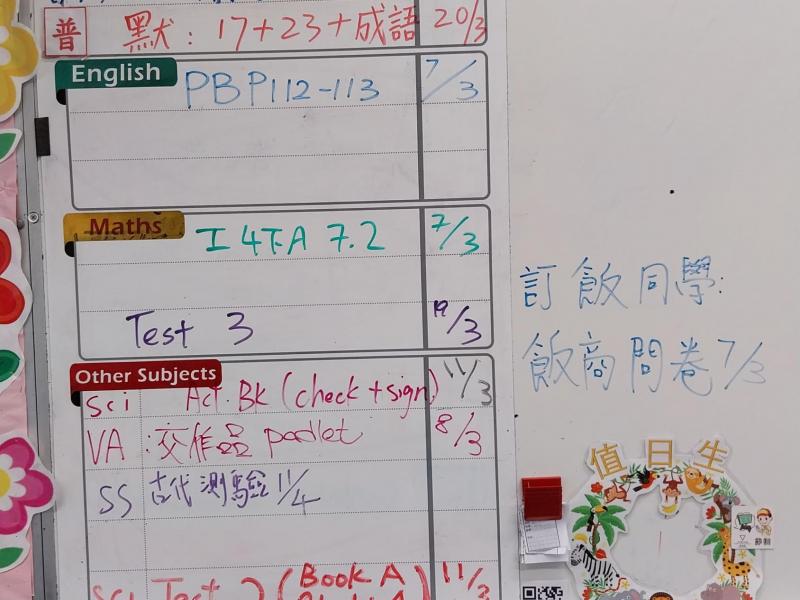 普 默: 17+23+成語 20/3
English
PBP112-113 7/3
Maths
I 4下A 7.2 7/3
Test 3 19/3
Other Subjects
Sci Act. BK (check + sign) 11/3
VA :交作品 padlet 8/3
SS 古代測驗 11/4
Sci Test 2 (Book A) 11/3
訂飯同學:
飯商問卷 7/3
值日生